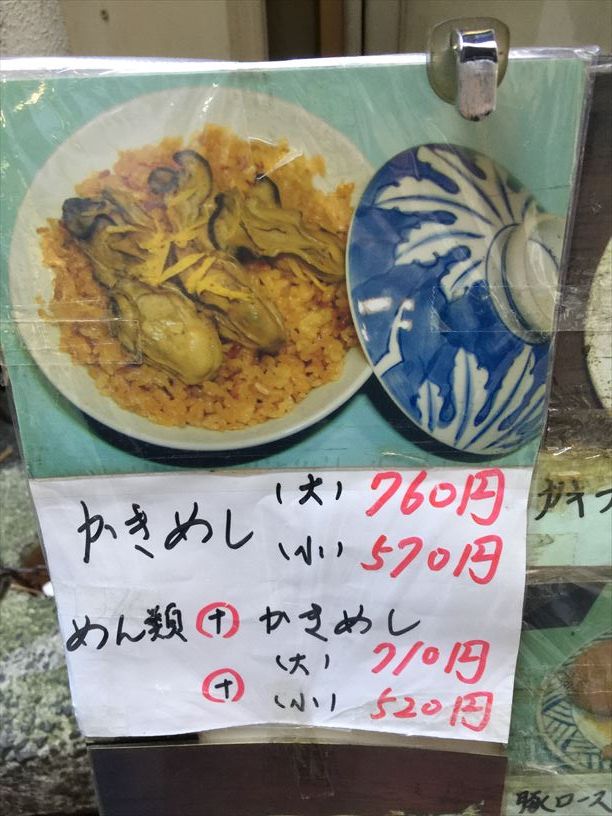 かきめし (大) 760円
(小) 570円
めん類 ⊕ かきめし
(大) 710円
⊕ (小) 520円
豚ロース